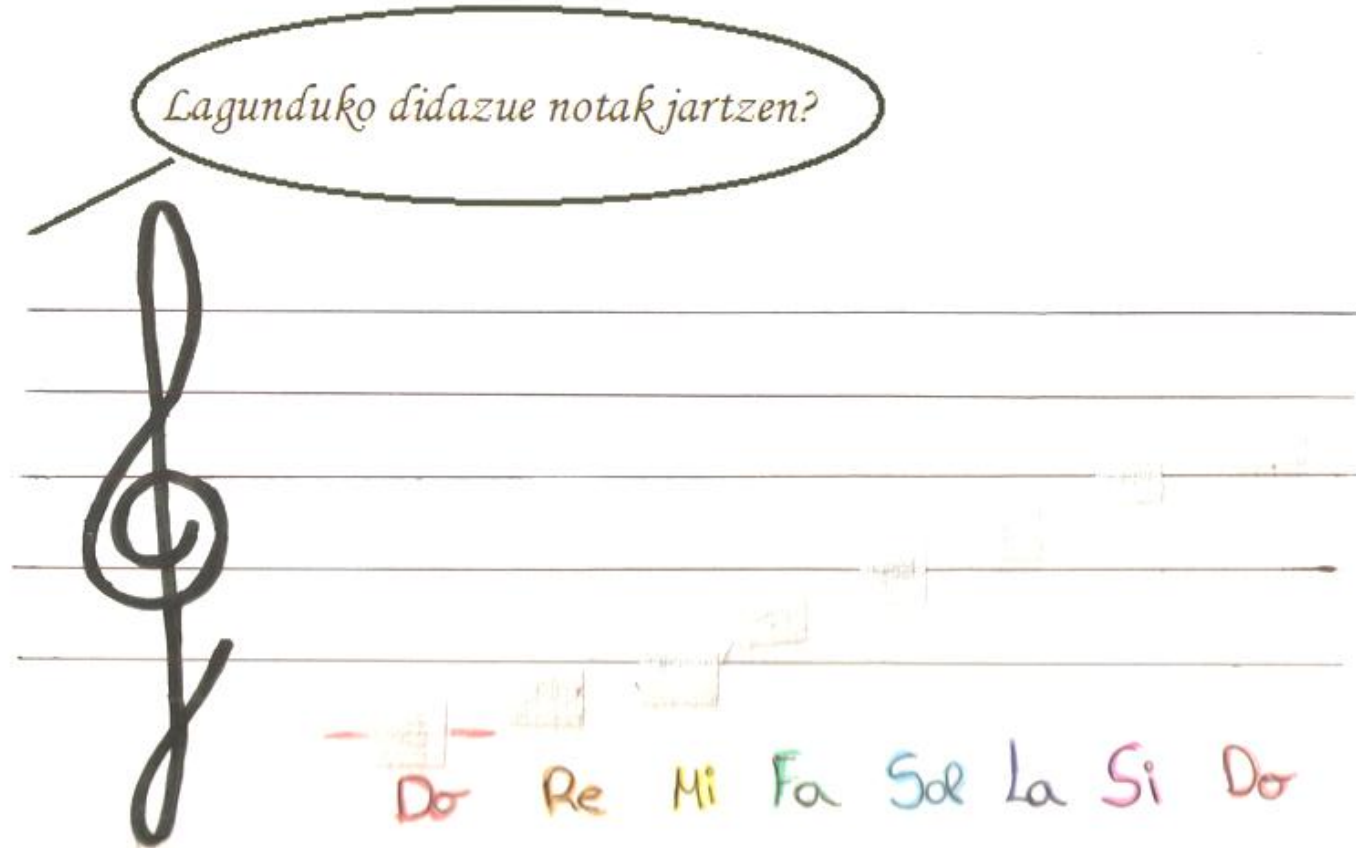 Lagunduko didazue notak jartzen?
Do Re Mi Fa Sol La Si Do